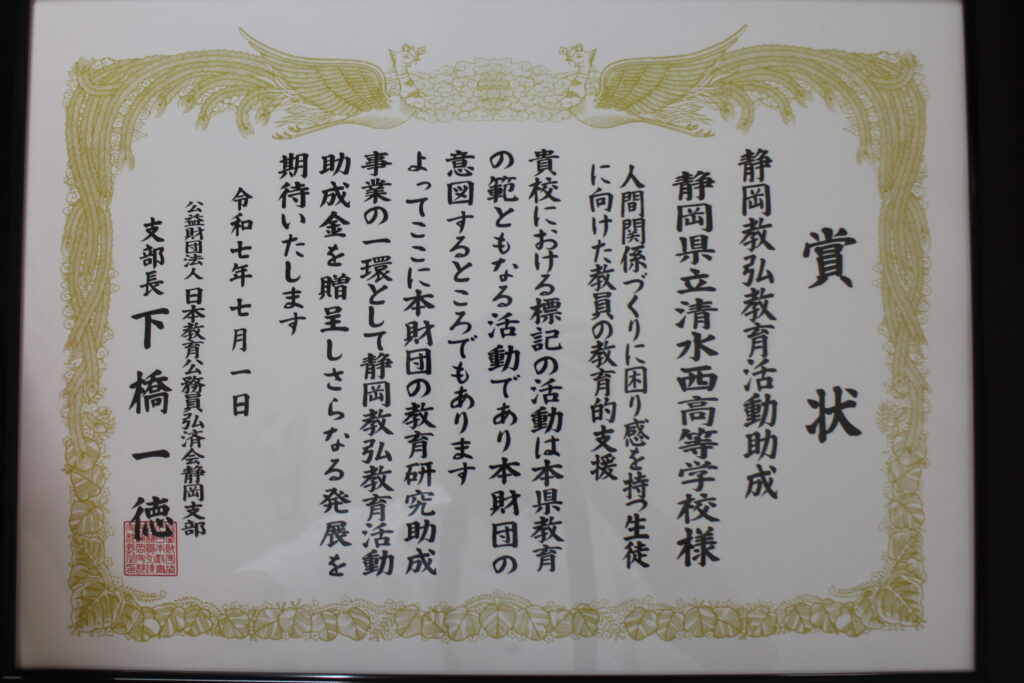 賞状
静岡教弘教育活動助成
静岡県立清水西高等学校様
人間関係づくりに困り感を持つ生徒
に向けた教員の教育的支援
貴校における標記の活動は本県教育
の範ともなる活動であり本財団の
意図するところでもあります
よってここに本財団の教育研究助成
事業の一環として静岡教弘教育活動
助成金を贈呈しさらなる発展を
期待いたします
令和七年七月一日
公益財団法人 日本教育公務員弘済会静岡支部
支部長 下橋一徳